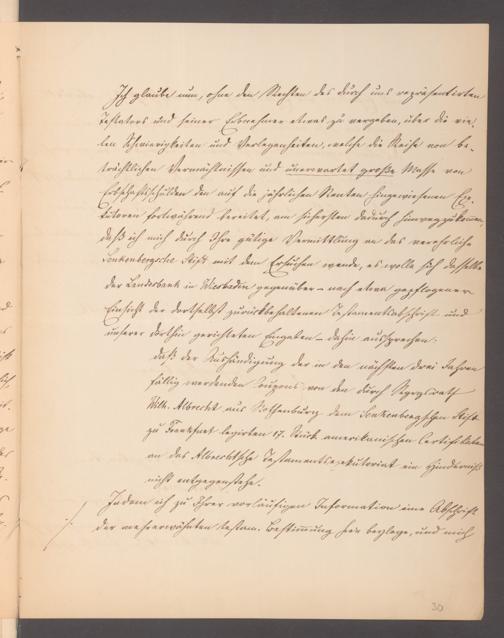 Ich glaube nun, ohne den Rechten des durch uns repräsentirten
Testators und seiner Erbnehmer etwas zu vergeben, über die vie-
len Schwierigkeiten und Verlegenheiten, welche die Reihe von be-
trächtlichen Vermächtnissen und unerwartet große Masse von
Erbschaftsschulden den auf die jährlichen Renten hingewiesenen Exe-
kutoren fortwährend bereitet, am sichersten dadurch hinwegzukommen,
daß ich mich durch Ihre gütige Vermittlung an das verehrliche
Senkenbergsche Stift mit dem Ersuchen wende, es wolle sich dasselbe
der Landesbank in Wiesbaden gegenüber – nach etwa gepflogener
Einsicht der dortselbst zurückbehaltenen Testamentsabschrift und
unserer dorthin gerichteten Eingaben – dahin aussprechen:
daß der Aushändigung der in den nächsten drei Jahren
fällig werdenden Coupons von den durch
Wilh. Albrecht aus Rothenburg dem Senkenbergschen Stift
zu Frankfurt legirten 17. Stück amerikanischen Certifikaten
an das Albrechtsche Testamentsexekutoriat ein Hinderniß
nicht entgegenstehe.
Indem ich zu Ihrer vorläufigen Information eine Abschrift
der mehrerwähnten testam. Bestimmung hier beylege, und mich
30